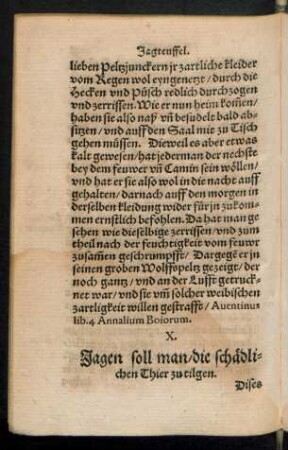 Jagteuffel.
lieben Peltzjunckern jr zartliche kleider
vom Regen wol eyngenetzt / durch die
Hecken vnd Püsch redlich durchzogen
vnd zerrissen. Wie er nun heim kom̃en /
haben sie also naß vñ besudelt bald ab-
sitzen / vnd auff den Saal mit zu Tisch
gehen müssen. Dieweil es aber etwas
kalt gewesen / hat jederman der nechste
bey dem feuwer vñ Camin sein wöllen /
vnd hat er sie also wol in die nacht auff
gehalten / darnach auff den morgen in
derselben kleidung wider für jn zukom-
men ernstlich befohlen. Da hat man ge
sehen wie dieselbige zerrissen / vnd zum
theil nach der feuchtigkeit vom feuwr
zusam̃en geschrumpfft / Dargegẽ er jn
seinen groben Wolffspeltz gezeigt / der
noch gantz / vnd an der Lufft getruck-
net war / vnd sie vm̃ solcher weibischen
zartligkeit willen gestrafft / Auentinus
lib. 4 Annalium Boiorum.
X.
Jagen soll man / die schädli-
chen Thier zu tilgen.
Dises